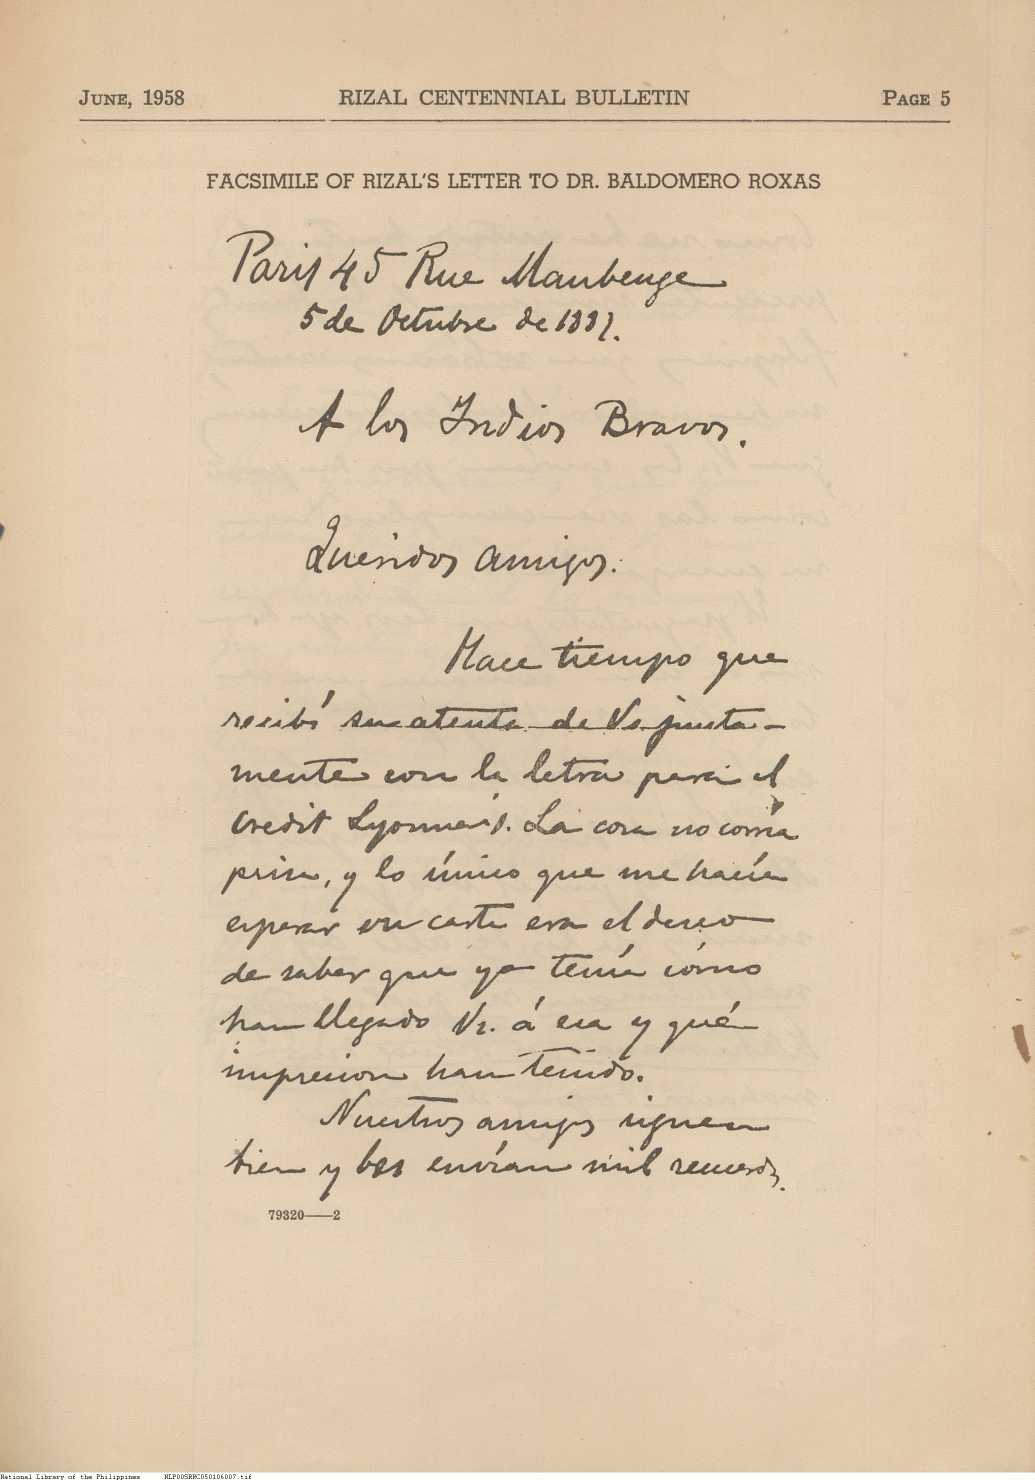 JUNE, 1958 RIZAL CENTENNIAL BULLETIN PAGE 5
FACSIMILE OF RIZAL'S LETTER TO DR. BALDOMERO ROXAS
Paris 45 Rue Maubeuge
5 de Octubre de 1889.
A los Indios Bravos.
Queridos amigos:
Hace tiempo que
recibí su atenta de Vs junta-
mente con la letra para el
Credit Lyonnais. La cosa no corría
prisa, y lo único que me hacía
esperar su carta era el deseo
de saber que ya tenía cómo
han llegado Vs. á esa y qué
impresion han tenido.
Nuestros amigos siguen
bien y les envían mil recuerdos.
79320——2
National Library of the Philippines NLP00SRRC050106007.tif